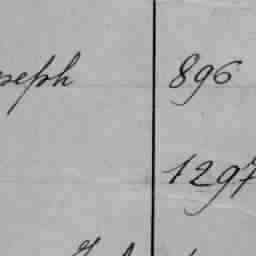 oseph 896
1297